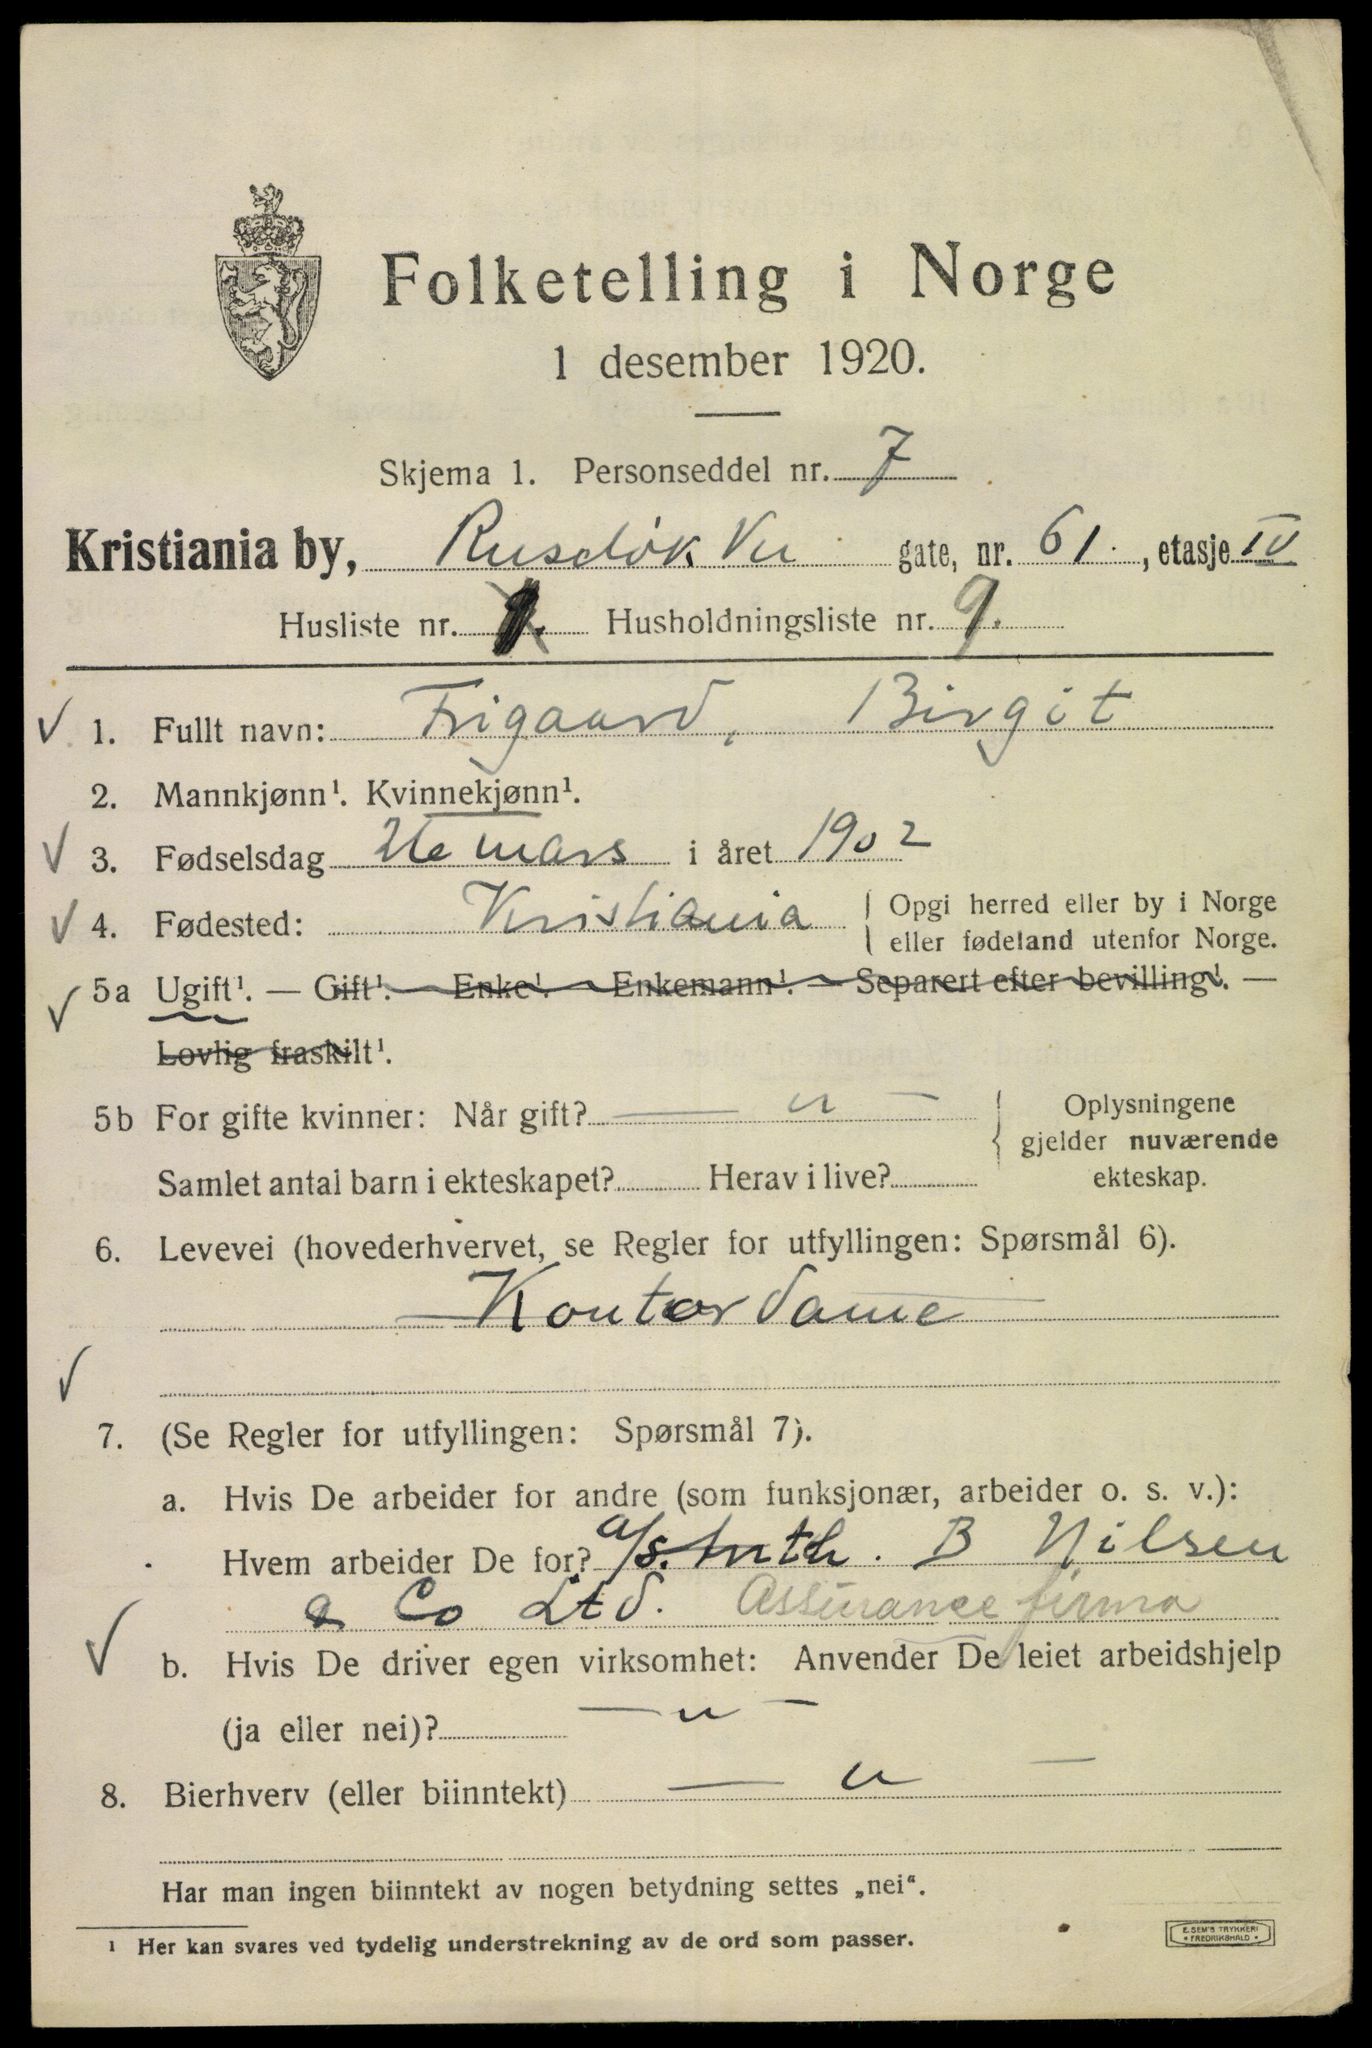 Folketelling i Norge
1 desember 1920.
Skjema 1. Personseddel nr. 7
Kristiania by, Ruseløk Vn gate, nr. 61., etasje IV
Husliste nr. 1. Husholdningsliste nr. 9.
1. Fullt navn: Frigaard, Birgit
2. Mannkjønn¹. Kvinnekjønn¹.
3. Fødselsdag mars i året 1902
4. Fødested: Kristiania
Opgi herred eller by i Norge
eller fødeland utenfor Norge.
5a Ugift¹. — Gift¹. — Enke¹. — Enkemann¹. — Separert efter bevilling¹. —
Lovlig fraskilt¹.
5b For gifte kvinner: Når gift? — u —
Samlet antal barn i ekteskapet? Herav i live?
Oplysningene
gjelder nuværende
ekteskap.
6. Levevei (hovederhvervet, se Regler for utfyllingen: Spørsmål 6).
Kontordame
7. (Se Regler for utfyllingen: Spørsmål 7).
a. Hvis De arbeider for andre (som funksjonær, arbeider o. s. v.):
Hvem arbeider De for? a/s. B Nilsen
& Co Ltd. Assurancefirma
b. Hvis De driver egen virksomhet: Anvender De leiet arbeidshjelp
(ja eller nei)? — u —
8. Bierhverv (eller biinntekt) — u —
Har man ingen biinntekt av nogen betydning settes „nei“.
¹ Her kan svares ved tydelig understrekning av de ord som passer.
E. SEM'S TRYKKERI
FREDRIKSHALD